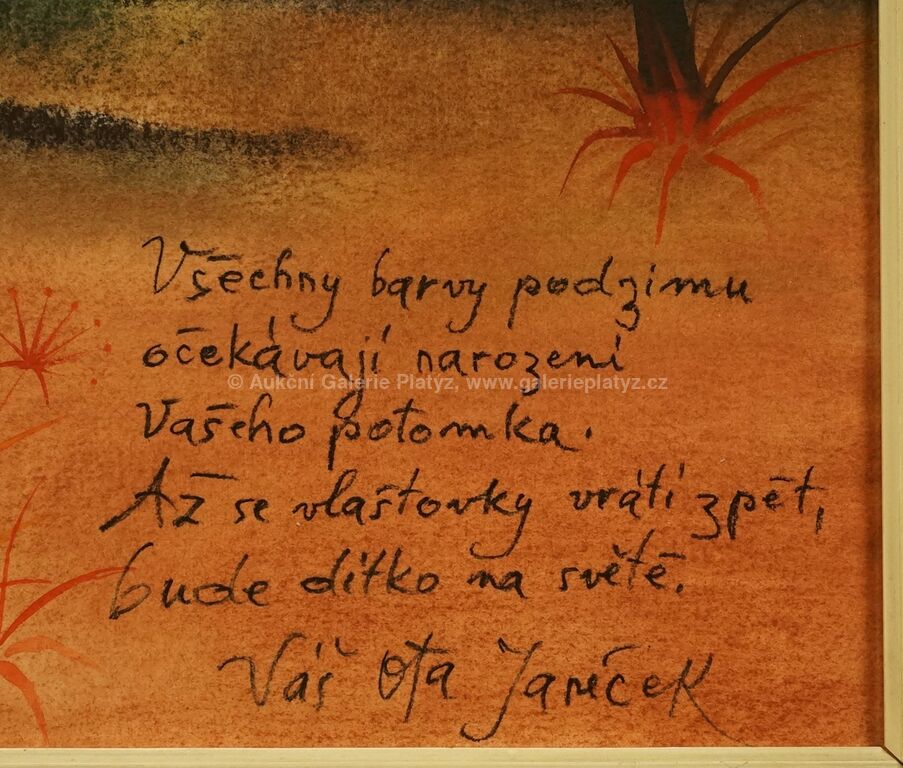 Všechny barvy podzimu
očekávají narození
© Aukční Galerie Platyz, www.galerieplatyz.cz
Vašeho potomka.
Až se vlaštovky vrátí zpět,
bude dítko na světě.
Váš Ota Janeček